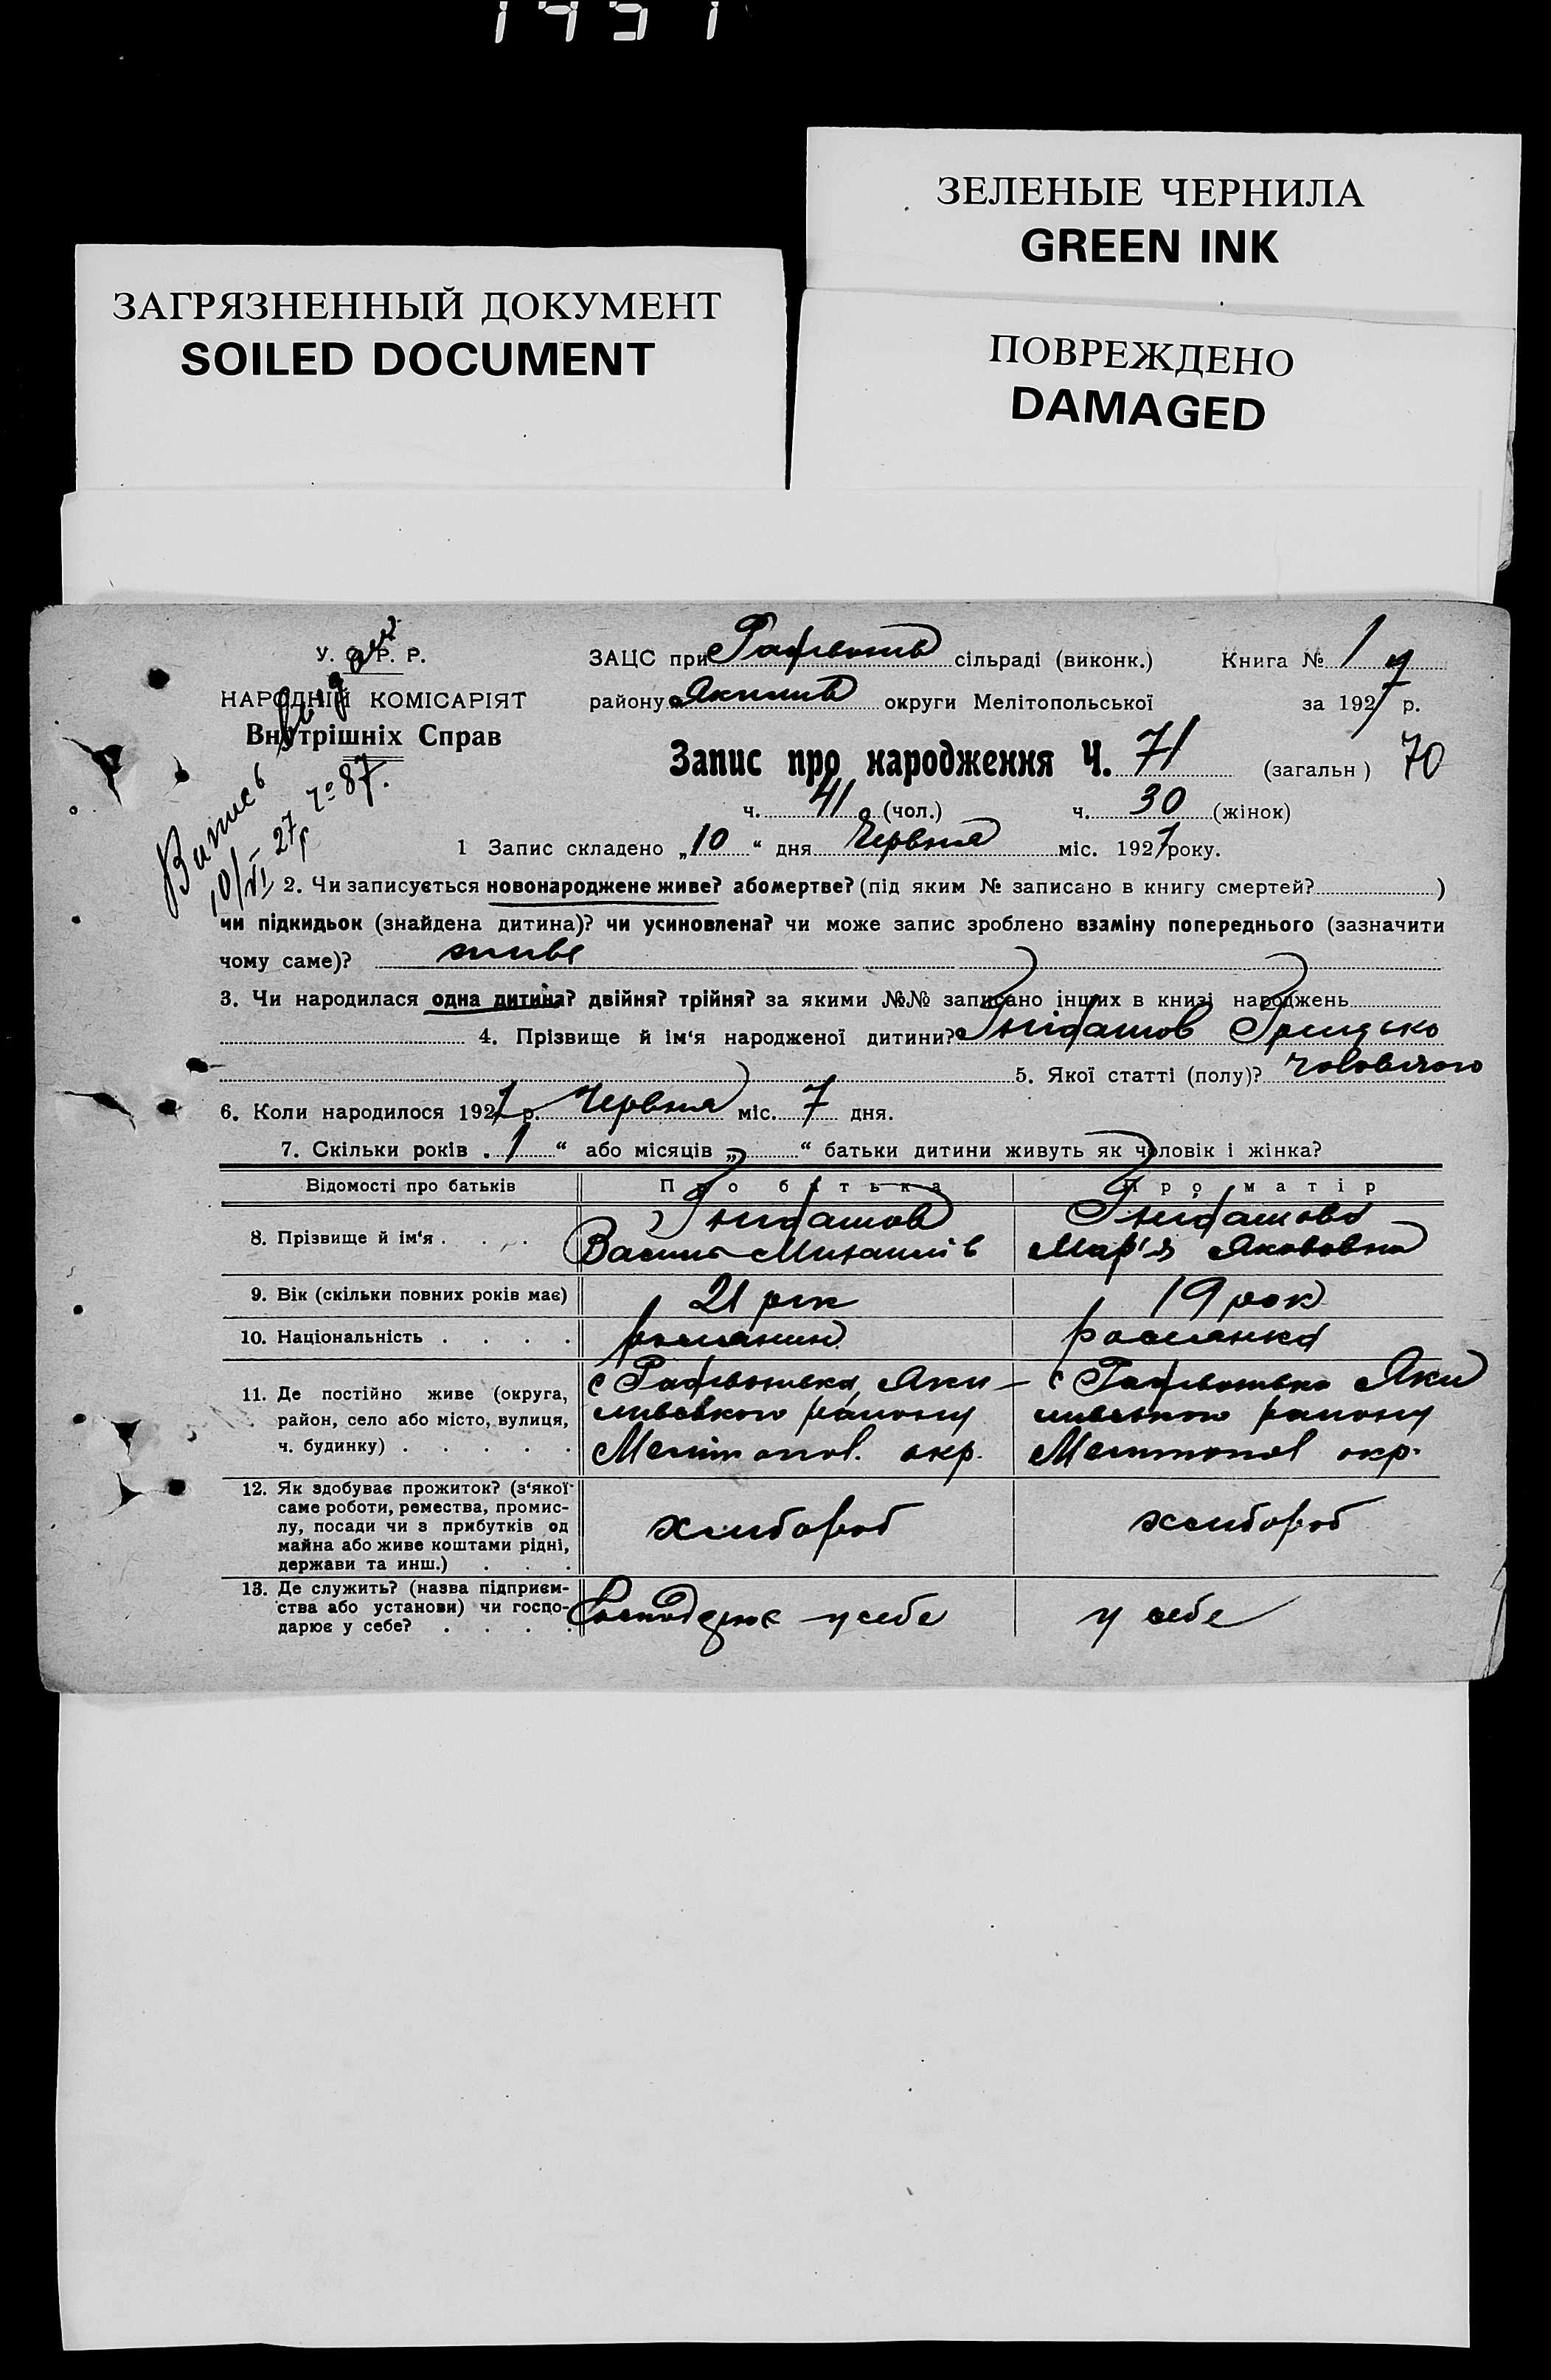 1451
ЗЕЛЕНЫЕ ЧЕРНИЛА
GREEN INK
ЗАГРЯЗНЕННЫЙ ДОКУМЕНТ
SOILED DOCUMENT
ПОВРЕЖДЕНО
DAMAGED
У. С. Р. Р.
НАРОДНІЙ КОМІСАРІЯТ
Внутрішніх Справ
Випись видана
10/XI-27р № 87.
ЗАЦС при сільраді (виконк.) Книга № 1
району Якимів округи Мелітопольської за 1927 р.
Запис про народження Ч. 71 (загальн) 70
ч. 41 (чол.) ч. 30 (жінок)
1 Запис складено „10“ дня Червня міс. 1927 року.
2. Чи записується новонароджене живе? або мертве? (під яким № записано в книгу смертей? )
чи підкидьок (знайдена дитина)? чи усиновлена? чи може запис зроблено взаміну попереднього (зазначити
чому саме)? живе
3. Чи народилася одна дитина? двійня? трійня? за якими №№ записано інших в книзі народжень
4. Прізвище й ім‘я народженої дитини? Грицько
5. Якої статті (полу)? чоловічого
6. Коли народилося 1927 р. Червня міс. 7 дня.
7. Скільки років „1“ або місяців „ “ батьки дитини живуть як чоловік і жінка?
Відомості про батьків Про батька Про матір
8. Прізвище й ім‘я . . . .
Василь Михайлів Мар'я Якововна
9. Вік (скільки повних років має) 21 рік 19 рок
10. Національність . . . .
11. Де постійно живе (округа, с Яки- с Яки
район, село або місто, вулиця, мівського району мівського району
ч. будинку) . . . . . Мелітопол. окр. Мелітопол окр.
12. Як здобуває прожиток? (з‘якої
саме роботи, ремества, промис-
лу, посади чи з прибутків од хлібороб хлібороб
майна або живе коштами рідні,
держави та инш.) . . .
13. Де служить? (назва підприєм-
ства або установи) чи госпо- Господарює у себе у себе
дарює у себе? . . . .